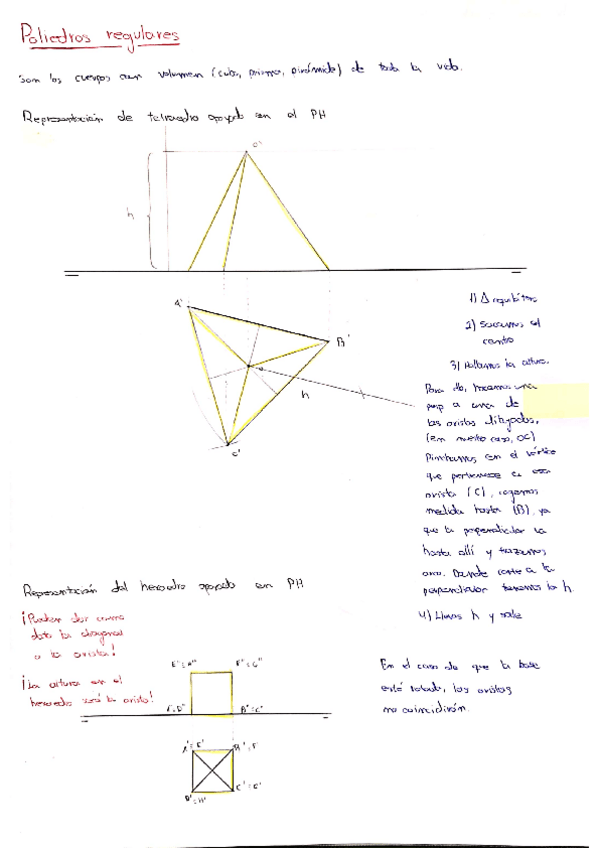 Poliedros regulares
Son los cuerpos con volumen (cubo, prisma, pirámide) de toda la vida.
Representación de tetraedro apoyado en el PH
O''
h
A'
B'
h
C'
1) Δ equilátero
2) Sacamos el
centro
3) Hallamos la altura.
Para ello, trazamos una
perp a una de
las aristas dibujadas,
(en nuestro caso, OC)
Pinchamos en el vértice
que pertenece a esa
arista (C), cogemos
medida hasta (B), ya
que la perpendicular va
hasta allí y trazamos
arco. Donde corte a la
perpendicular tenemos la h.
4) Llevas h y sale
Representación del hexaedro apoyado en PH
¡Pueden dar como
dato la diagonal
o la arista!
¡La altura en el
hexaedro será la arista!
B''≡C''
D'≡H'
En el caso de que la base
esté rotada, las aristas
no coincidirán.